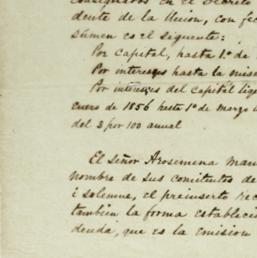 consignados en el decreto
dente de la Union, con fec
súmen es el siguiente:
Por capital, hasta 1º de
Por intereses hasta la mism
Por intereses del capital liq
enero de 1856 hsta 1º de Marzo
del 3 por 100 anual
El Señor Arosemena man
nombre de sus comitentes de
i solemne, el preinserto rec
tambien la forma establecid
deuda, que es la emision